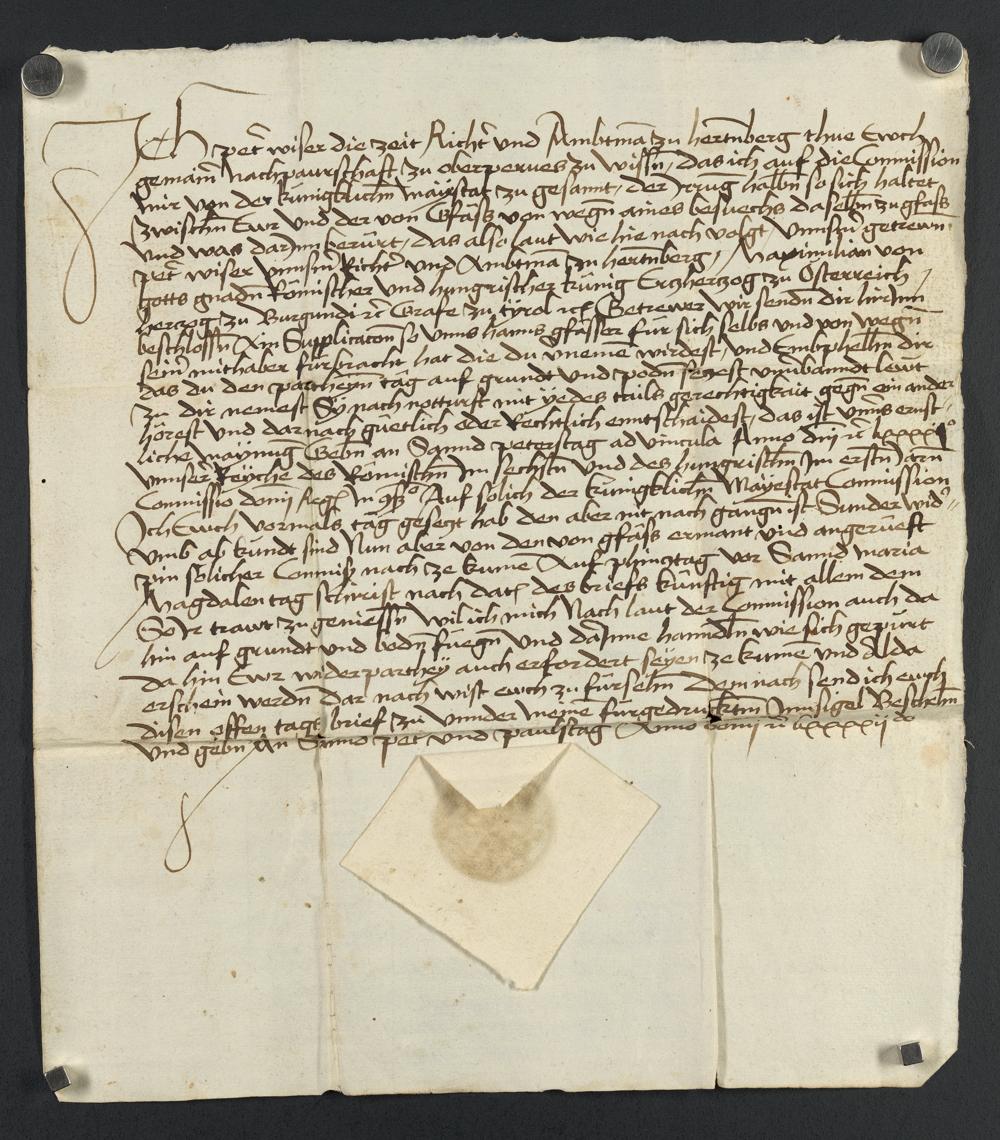 Ich peter wiser die zeit Richter und Ambtman zu hertnberg thue Ewch
gemain Nachpaurschaft zu oberperves zu wissn, das ich auf die Commission
mir von der kunigklichn Mayestat zu gesannt, der Irrung halbn so sich haltet
zwischn Ewr und der von Gfäss von wegn aines besuechs daselbn zu gfäss
und was darInn berürt, das also laut wie hie nach volgt, Unnserm getrewn
peter wiser unnserm Richter und Ambtman zu hertnberg, Maximilian von
gotts gnadn Römischer und hungrischer kunig Ertzherzog zu Österreich
herzog zu Burgundi etc Grafe zu tyrol etc Getrewer wir sendn dir hirInn
beschlossn Ain Supplicacion so unns hanns gfässer für sich selbs und von wegn
seiner mithaber fürbracht hat die du vernemen wirdest, und Emphelhn dir
das du den partheyen tag auf grundt und podn setzest unverbanndt lewt
zu dir nemest Sy nach notturft mit yedes tails gerechtigkait gegn ein ander
hörest und darnach güetlich oder Rechtlich enntschaidest, das ist unns ernst-
liche maynung Gebn an Sannd peterstag ad vincula Anno dni etc
unnser Reyche des Römischn Im sechstn und des hungrischn Im erstn Jarn
Commissio domini Regis In Auf solich der kunigklichn Mayestat Commission
Ich Ewch vormals tag gesetzt hab den aber nit nach gangn ist Sunder wider-
umb ab kündt sind Nun aber von den von gfäss ermant und angerüeft
pin solicher Commiss nach ze kumen Auf phinztag vor Sannd Maria
Magdalen tag schirist nach dat des briefs künftig mit allem dem
So Ir trawt zu geniessn wil ich mich Nach laut der Commission auch da
hin auf grundt und bodn fuegn und daInne hanndln wie sich gepürt
da hin Ewr widerparthey auch erfordert seyen ze kume und Alda
erschein werdn dar nach wist ewch zu fürsehn Demnach send ich ewch
disen offen tags brief zu unnder meinem fürgedrucktm Innsigel Beschehn
und gebn An Sannd peter und paulstag Anno domini etc lxxxxij do